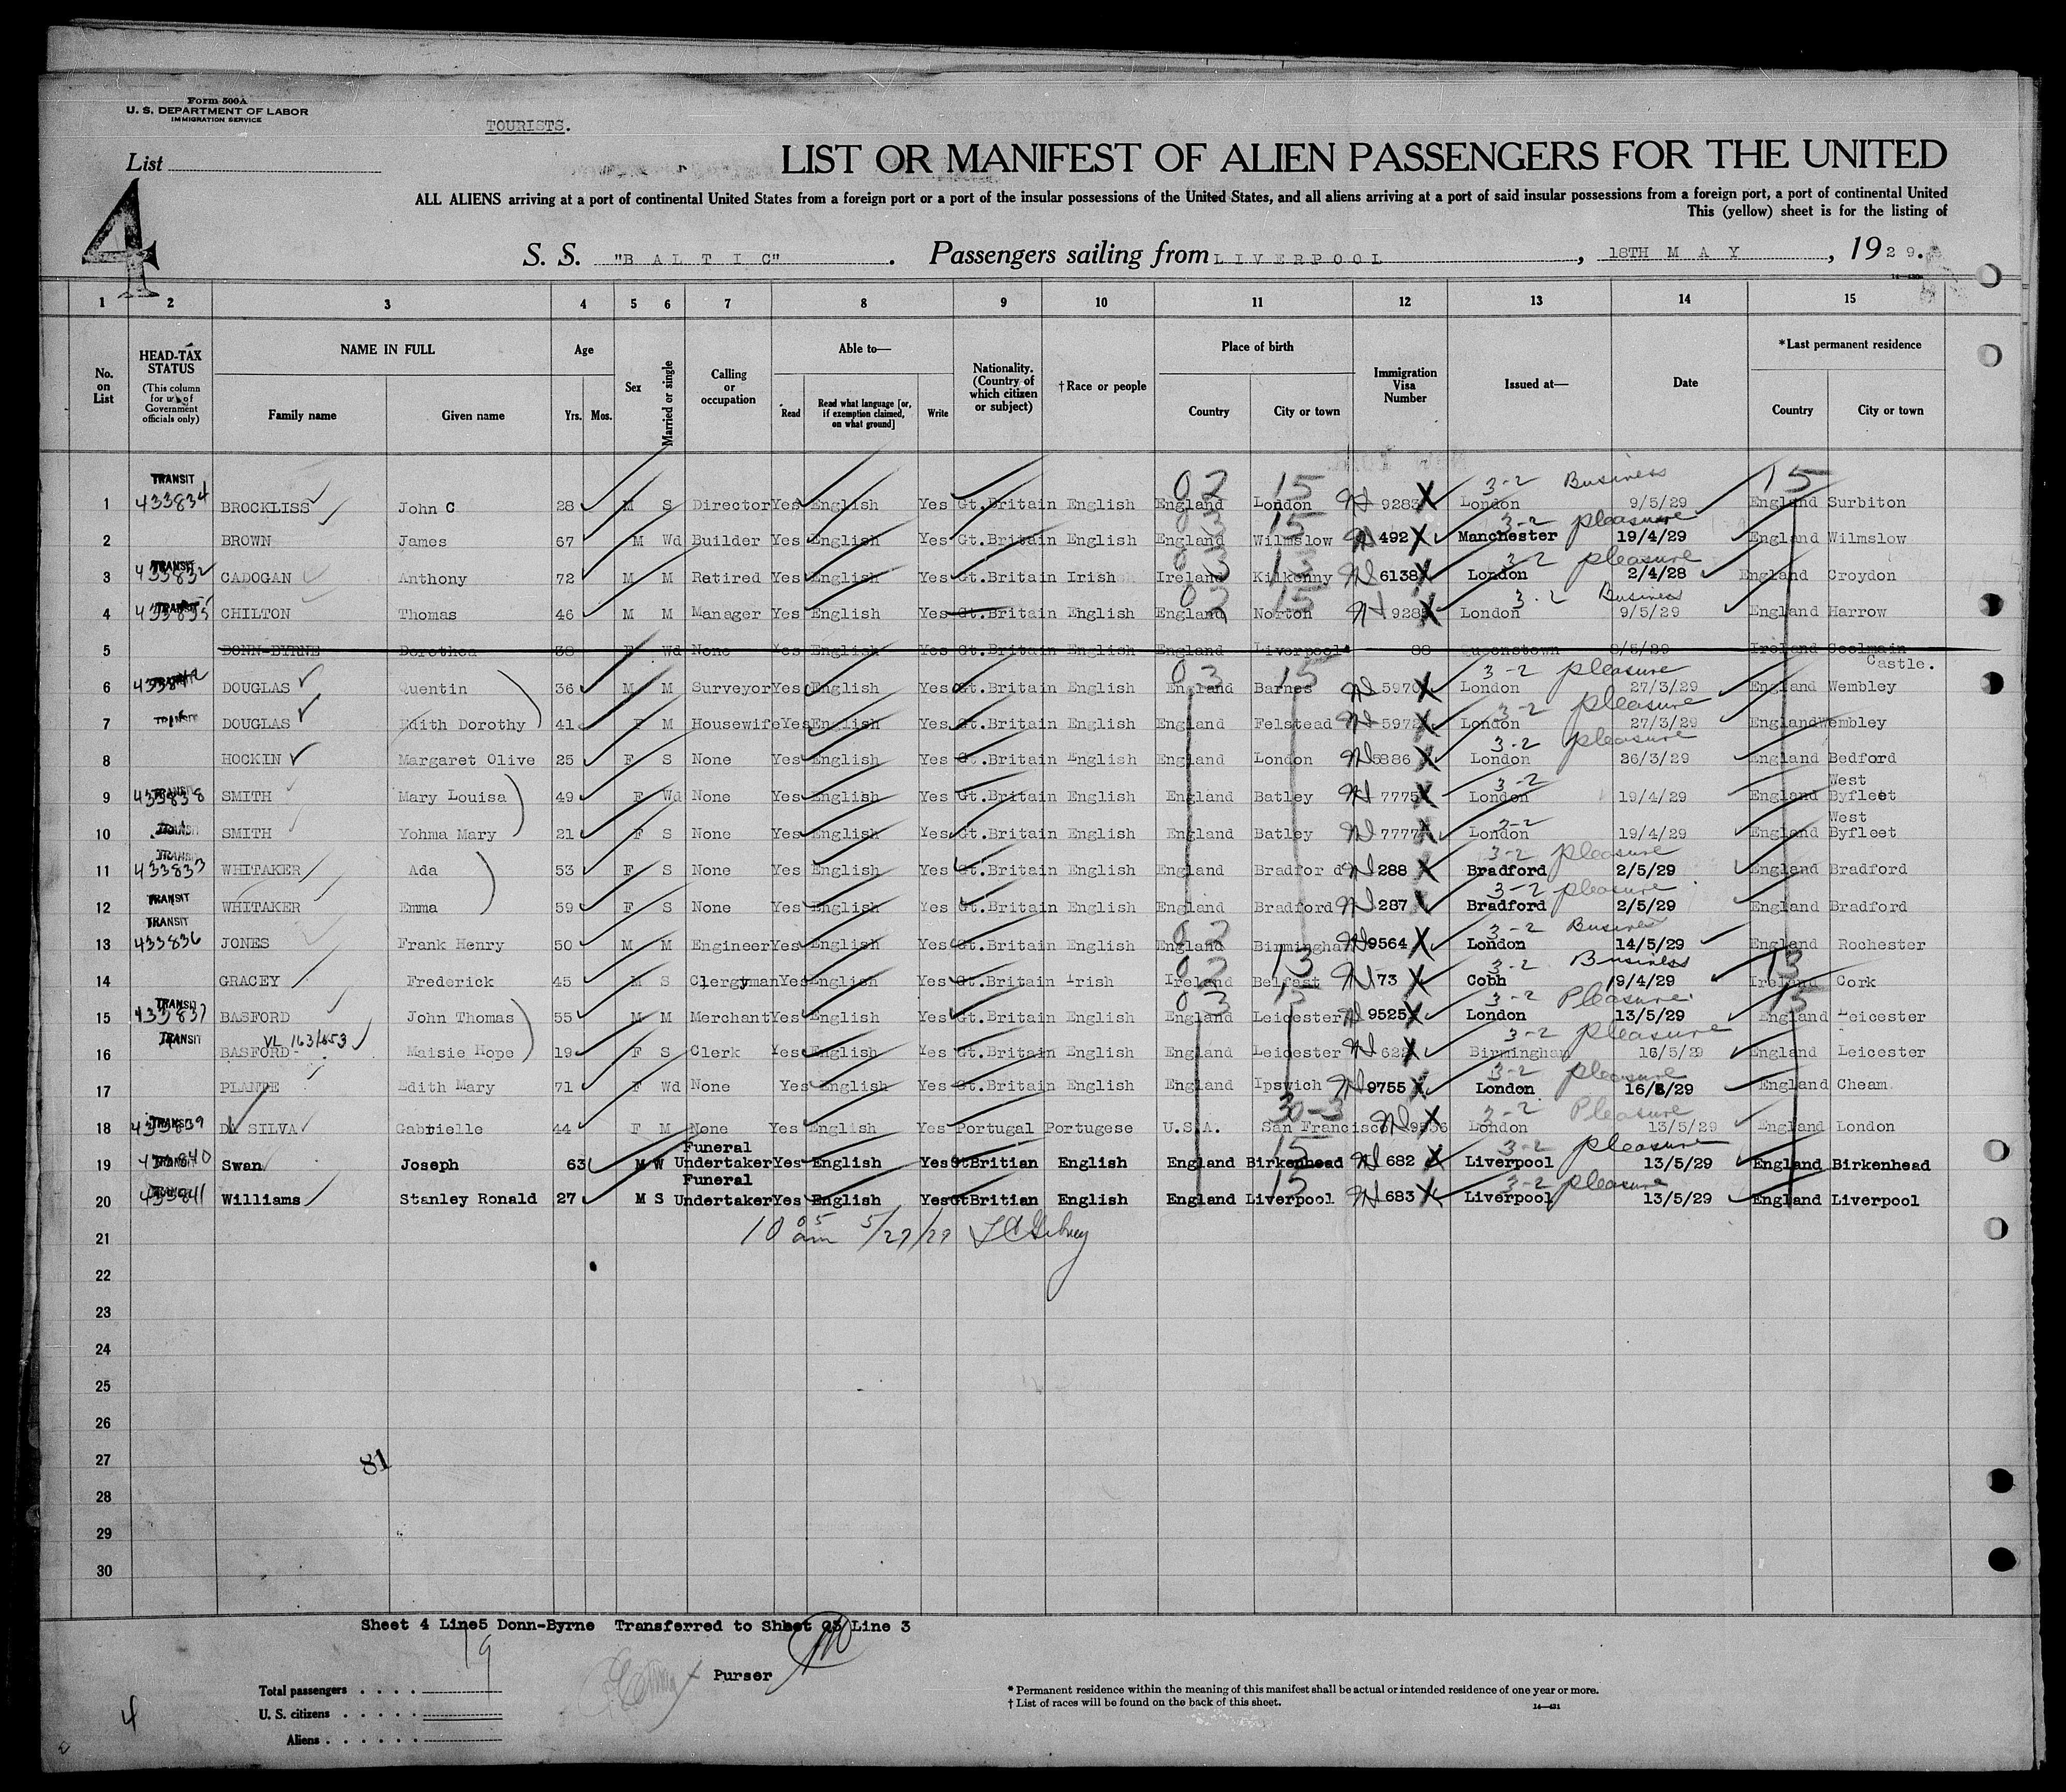 Form 500A
U. S. DEPARTMENT OF LABOR
IMMIGRATION SERVICE
TOURISTS.
List
4
LIST OR MANIFEST OF ALIEN PASSENGERS FOR THE UNITED
ALL ALIENS arriving at a port of continental United States from a foreign port or a port of the insular possessions of the United States, and all aliens arriving at a port of said insular possessions from a foreign port, a port of continental United
This (yellow) sheet is for the listing of
S. S. "B A L T I C" . Passengers sailing from L I V E R P O O L , 18TH M A Y , 19 2 9.
1 2 3 4 5 6 7 8 9 10 11 12 13 14 15
No. on List
HEAD-TAX STATUS (This column for use of Government officials only)
NAME IN FULL Family name Given name
Age Yrs. Mos.
Sex
Married or single
Calling or occupation
Able to— Read Read what language [or, if exemption claimed, on what ground] Write
Nationality. (Country of which citizen or subject)
†Race or people
Place of birth Country City or town
Immigration Visa Number
Issued at—
Date
*Last permanent residence Country City or town
TRANSIT 02 15 3-2 Business 15
1 433834 BROCKLISS John C 28 M S Director Yes English Yes Gt.Britain English England London 9283 London 9/5/29 England Surbiton
03 15 3-2 pleasure
2 BROWN James 67 M Wd Builder Yes English Yes Gt.Britain English England Wilmslow 492 Manchester 19/4/29 England Wilmslow
TRANSIT 03 13 3-2 pleasure
3 433832 CADOGAN Anthony 72 M M Retired Yes English Yes Gt.Britain Irish Ireland Kilkenny 6138 London 2/4/28 England Croydon
TRANSIT 02 15 3-2 Business
4 433835 CHILTON Thomas 46 M M Manager Yes English Yes Gt.Britain English England Norton 928 London 9/5/29 England Harrow
5 DONN-BYRNE Dorothea 38 F Wd None Yes English Yes Gt.Britain English England Liverpool 88 Queenstown 8/5/29 Ireland Coolmain Castle.
TRANSIT 03 15 3-2 pleasure
6 DOUGLAS Quentin 36 M M Surveyor Yes English Yes Gt.Britain English England Barnes 5970 London 27/3/29 England Wembley
3-2 pleasure
7 TRANSIT DOUGLAS Edith Dorothy 41 F M Housewife Yes English Yes Gt.Britain English England Felstead 597 London 27/3/29 England Wembley
3-2 pleasure
8 HOCKIN Margaret Olive 25 F S None Yes English Yes Gt.Britain English England London 5886 London 26/3/29 England Bedford
TRANSIT 3-2
9 433838 SMITH Mary Louisa 49 F Wd None Yes English Yes Gt.Britain English England Batley 7775 London 19/4/29 England West Byfleet
3-2
10 TRANSIT SMITH Yohma Mary 21 F S None Yes English Yes Gt.Britain English England Batley 7777 London 19/4/29 England West Byfleet
TRANSIT 3-2 pleasure
11 433833 WHITAKER Ada 53 F S None Yes English Yes Gt.Britain English England Bradfor d 288 Bradford 2/5/29 England Bradford
TRANSIT 3-2 pleasure
12 WHITAKER Emma 59 F S None Yes English Yes Gt.Britain English England Bradford 287 Bradford 2/5/29 England Bradford
TRANSIT 02 3-2 Business
13 433836 JONES Frank Henry 50 M M Engineer Yes English Yes Gt.Britain English England Birmingham 9564 London 14/5/29 England Rochester
02 13 3-2 Business 13
14 GRACEY Frederick 45 M S Clergyman Yes English Yes Gt.Britain Irish Ireland Belfast 73 Cobh 19/4/29 Ireland Cork
TRANSIT 03 15 3-2 Pleasure 15
15 433837 BASFORD John Thomas 55 M M Merchant Yes English Yes Gt.Britain English England Leicester 9525 London 13/5/29 England Leicester
TRANSIT VL 163/653 3-2 pleasure
16 BASFORD Maisie Hope 19 F S Clerk Yes English Yes Gt.Britain English England Leicester 622 Birmingham 16/5/29 England Leicester
3-2 pleasure
17 PLANTE Edith Mary 71 F Wd None Yes English Yes Gt.Britain English England Ipswich 9755 London 16/5/29 England Cheam
TRANSIT 30-3 3-2 Pleasure
18 433839 DA SILVA Gabrielle 44 F M None Yes English Yes Portugal Portugese U.S.A. San Francisco London 13/5/29 England London
Funeral 15 3-2 pleasure
19 433840 TRANSIT Swan Joseph 63 M W Undertaker Yes English Yes GtBritian English England Birkenhead 682 Liverpool 13/5/29 England Birkenhead
Funeral 15 3-2 pleasure
20 433841 TRANSIT Williams Stanley Ronald 27 M S Undertaker Yes English Yes GtBritian English England Liverpool 683 Liverpool 13/5/29 England Liverpool
10 05 am 5/27/29
21
22
23
24
25
26
27
81
28
29
30
Sheet 4 Line5 Donn-Byrne Transferred to Sheet Line 3
19
Purser
Total passengers
U. S. citizens
Aliens
4
* Permanent residence within the meaning of this manifest shall be actual or intended residence of one year or more.
† List of races will be found on the back of this sheet.
14—421